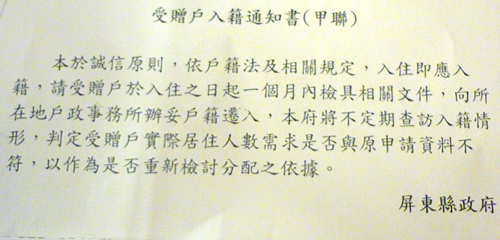 受贈戶入籍通知書(甲聯)
本於誠信原則，依戶籍法及相關規定，入住即應入
籍，請受贈戶於入住之日起一個月內檢具相關文件，向所
在地戶政事務所辦妥戶籍遷入，本府將不定期查訪入籍情
形，判定受贈戶實際居住人數需求是否與原申請資料不
符，以作為是否重新檢討分配之依據。
屏東縣政府